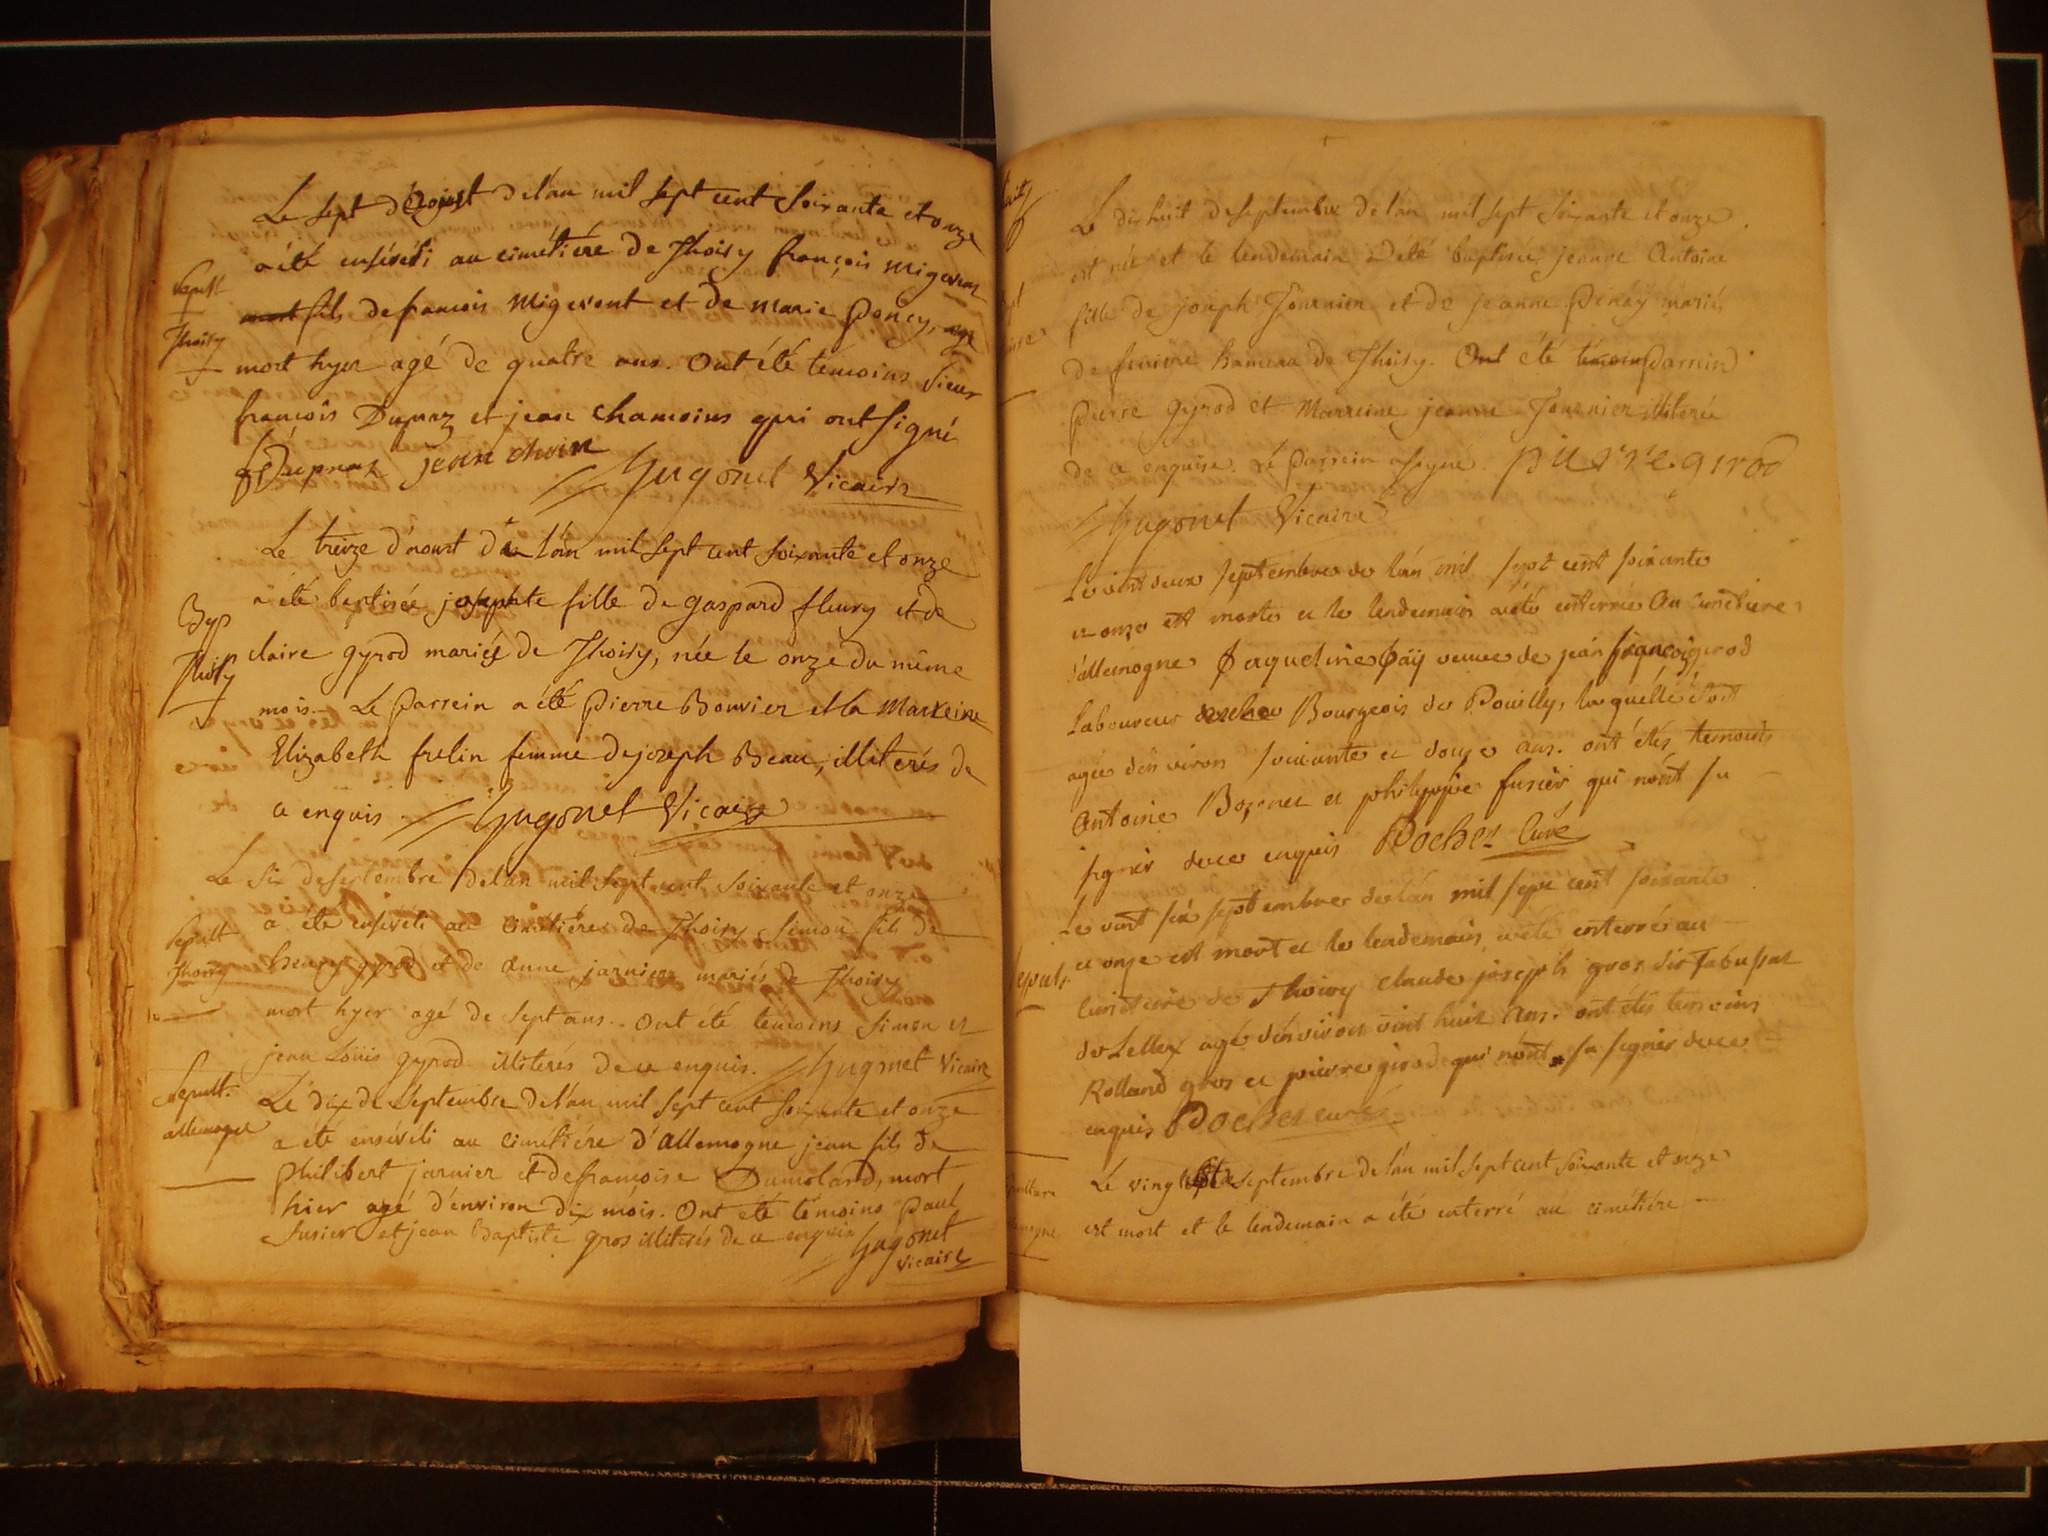 Le sept d'Aoust de l'an mil sept cent soixante et onze
a été enséveli au cimétiére de Thoiry françois Migevent
Sepult
fils de francois Migevent et de Marie Poncy,
Thoiry
mort hyer agé de quatre ans. Ont été témoins Sieur
françois Dupraz et jean Chamoins qui ont signé
Dupraz jean choin Hugonet Vicaire
Le treize d'aoust de l'an mil sept cent soixante et onze
a été baptisée josephte fille de gaspard fleury et de
Bap
claire gyrod mariés de Thoiry, née le onze du même
Thoiry
mois. Le Parrein a été Pierre Bouvier et la Marreine
Elizabeth frelin femme de joseph Beau, illiterés de
ce enquis. Hugonet Vicaire
Le six de septembre de l'an mil sept cent soixante et onze
a été enséveli au cimétiére de Thoiry Simon fils de
Sepult
henry gyrod et de Anne jarnier mariés de Thoiry
Thoiry
mort hyer agé de sept ans. Ont été témoins Simon et
jean Loüis gyrod illiterés de ce enquis. Hugonet Vicaire
Sepult.
Le dix de Septembre de l'an mil sept cent soixante et onze
allemogne
a été enséveli au cimétiére d'allemogne jean fils de
Philibert jarnier et de françoise Dumoland, mort
hier agé d'environ dix mois. Ont été témoins Paul
fusier et jean Baptiste gros illiterés de ce enquis Hugonet
Vicaire
Le dix huit de septembre de l'an mil sept soixante et onze
est née et le lendemain a été baptisée jeanne Antoine
fille de joseph Fournier et de jeanne Penay mariés
de hameau de Thoiry. Ont été Parrein
Pierre gyrod et Marreine jeanne Fournier illiterée
de ce enquise. Le Parrein a signé. PiERRE girod
Hugonet Vicaire
Le vint deux septembre de lan mil sept cent soixante
et onze est morte et le lendemain a été enterrée Au cimetiere
d'allemogne Jaqueline Päy veuve de jean françois girod
Laboureur Bourgeois de Pouilly, laquelle étoit
agée d'environ soixante et douze ans. ont étés temoins
Antoine Bozonet et philippe fusier qui n'ont su
signer de ce enquis Rochet Curé
Le vint six septembre de lan mil sept cent soixante
et onze est mort et le lendemain a été enterré au
Sepult.
Cimetiere de Thoiry claude joseph gros dit Tabussat
de Lellex agé d'environ vint huit Ans. ont étés temoins
Rolland gros et pierre girod qui n'ont su signer de ce
enquis Rochet curé
Le vingt septembre de l'an mil sept cent soixante et onze
est mort et le lendemain a été enterré au cimétiére